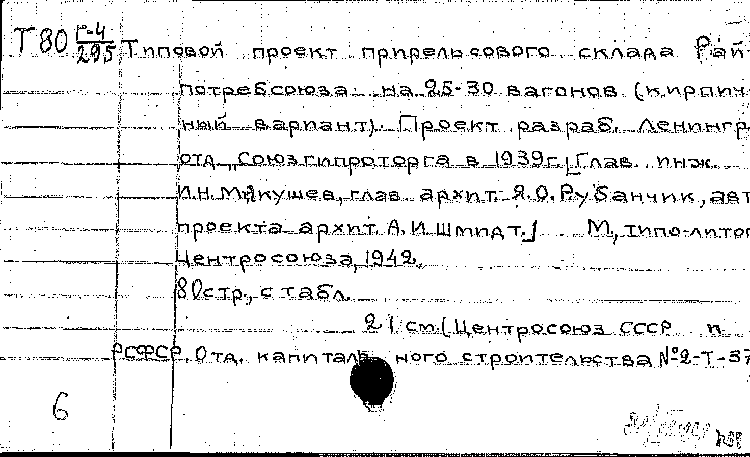 Т80 Г-4/295 Типовой проект прирельсового склада Рай-
потребсоюза на 25-30 вагонов (кирпич-
ный вариант). Проект разраб. Ленингр.
отд. "Союзгипроторга в 1939г. [Глав. инж.
И.Н. Мякушев, глав. архит. Я.О. Рубанчик, авт.
проекта архит. А.И. Шмидт.] М., типо-литог.
Центросоюза, 1942.
80стр., с табл.
21 см. (Центросоюз СССР и
РСФСР. Отд. капиталь ного строительства №2-Т-37
6